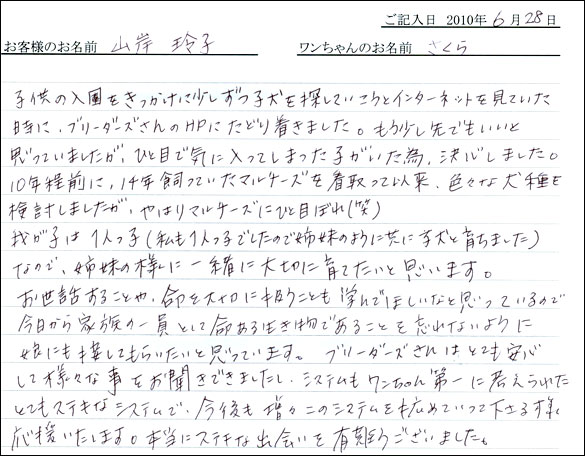 ご記入日 2010年 6月 28日
お客様のお名前 山岸 玲子 ワンちゃんのお名前 さくら
子供の入園をきっかけに少しずつ子犬を探していこうとインターネットを見ていた
時に、ブリーダーズさんのHPにたどり着きました。もう少し先でもいいと
思っていましたが、ひと目で気に入ってしまった子がいた為、決心しました。
10年程前に、14年飼っていたマルチーズを看取って以来、色々な犬種を
検討しましたが、やはりマルチーズにひと目ぼれ(笑)
我が子は1人っ子(私も1人っ子でしたので姉妹のように共に子犬と育ちました)
なので、姉妹の様に一緒に大切に育てたいと思います。
お世話することや、命を大切に扱うことも学んでほしいなと思っているので
今日から家族の一員として命ある生き物であることを忘れないように
娘にも接してもらいたいと思っています。 ブリーダーズさんはとても安心
して様々な事をお聞きできましたし、システムもワンちゃん第一に考えられた
とてもステキなシステムで、今後も増々このシステムを広めていって下さる様、
応援いたします。本当にステキな出会いを有難うございました。